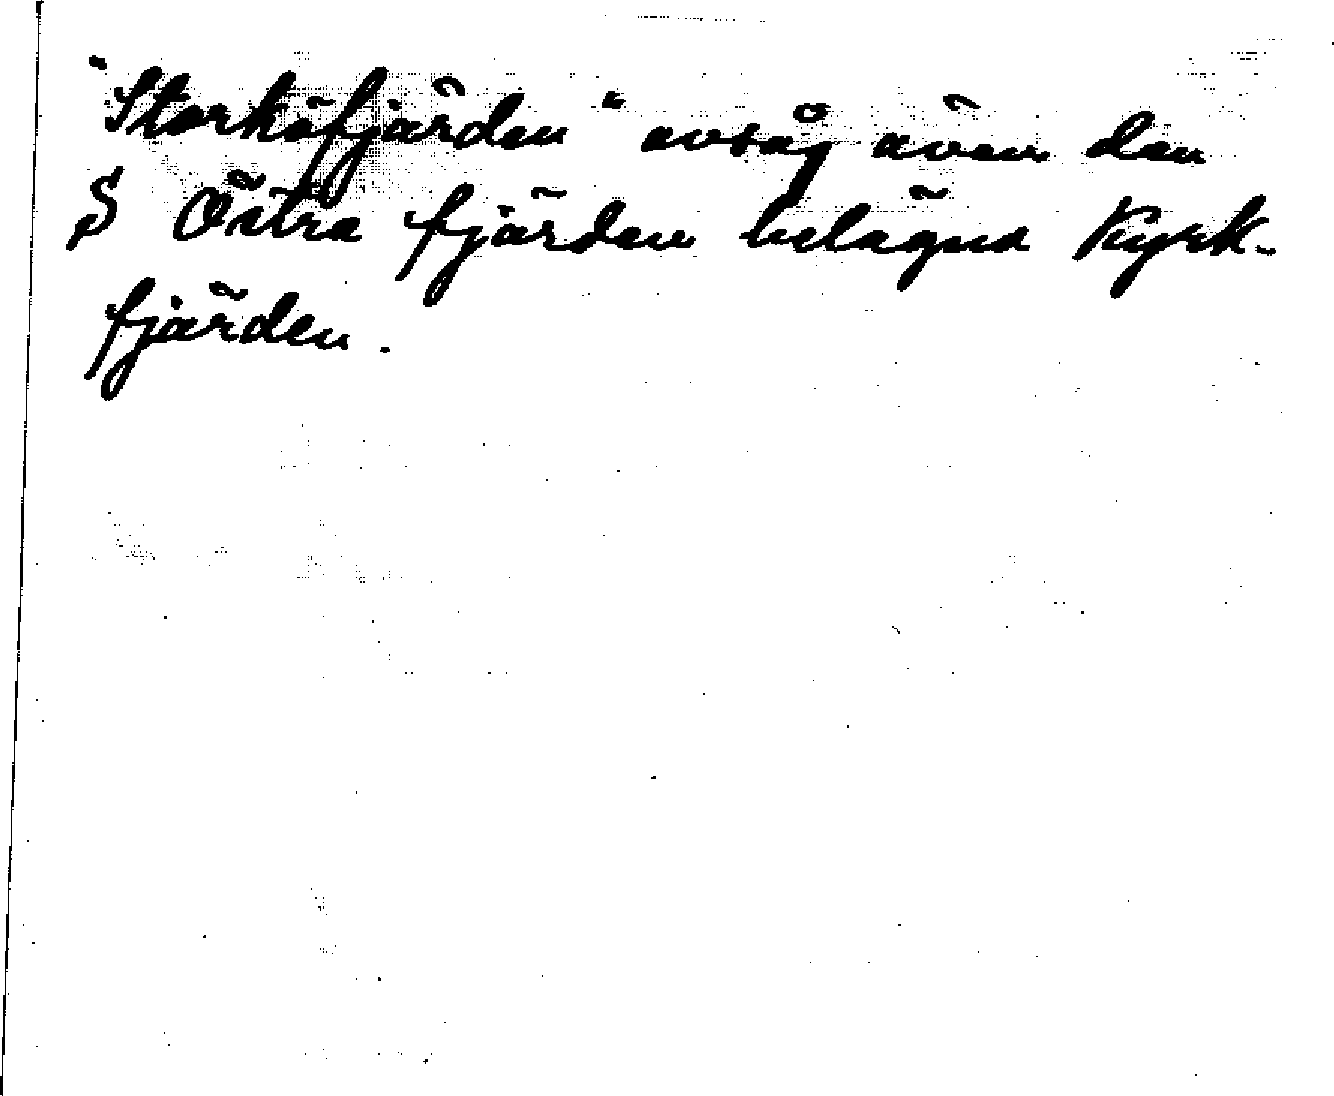 "Storhöfjärden" avsåg även den
S Östra fjärden belägna Kyrk-
fjärden.